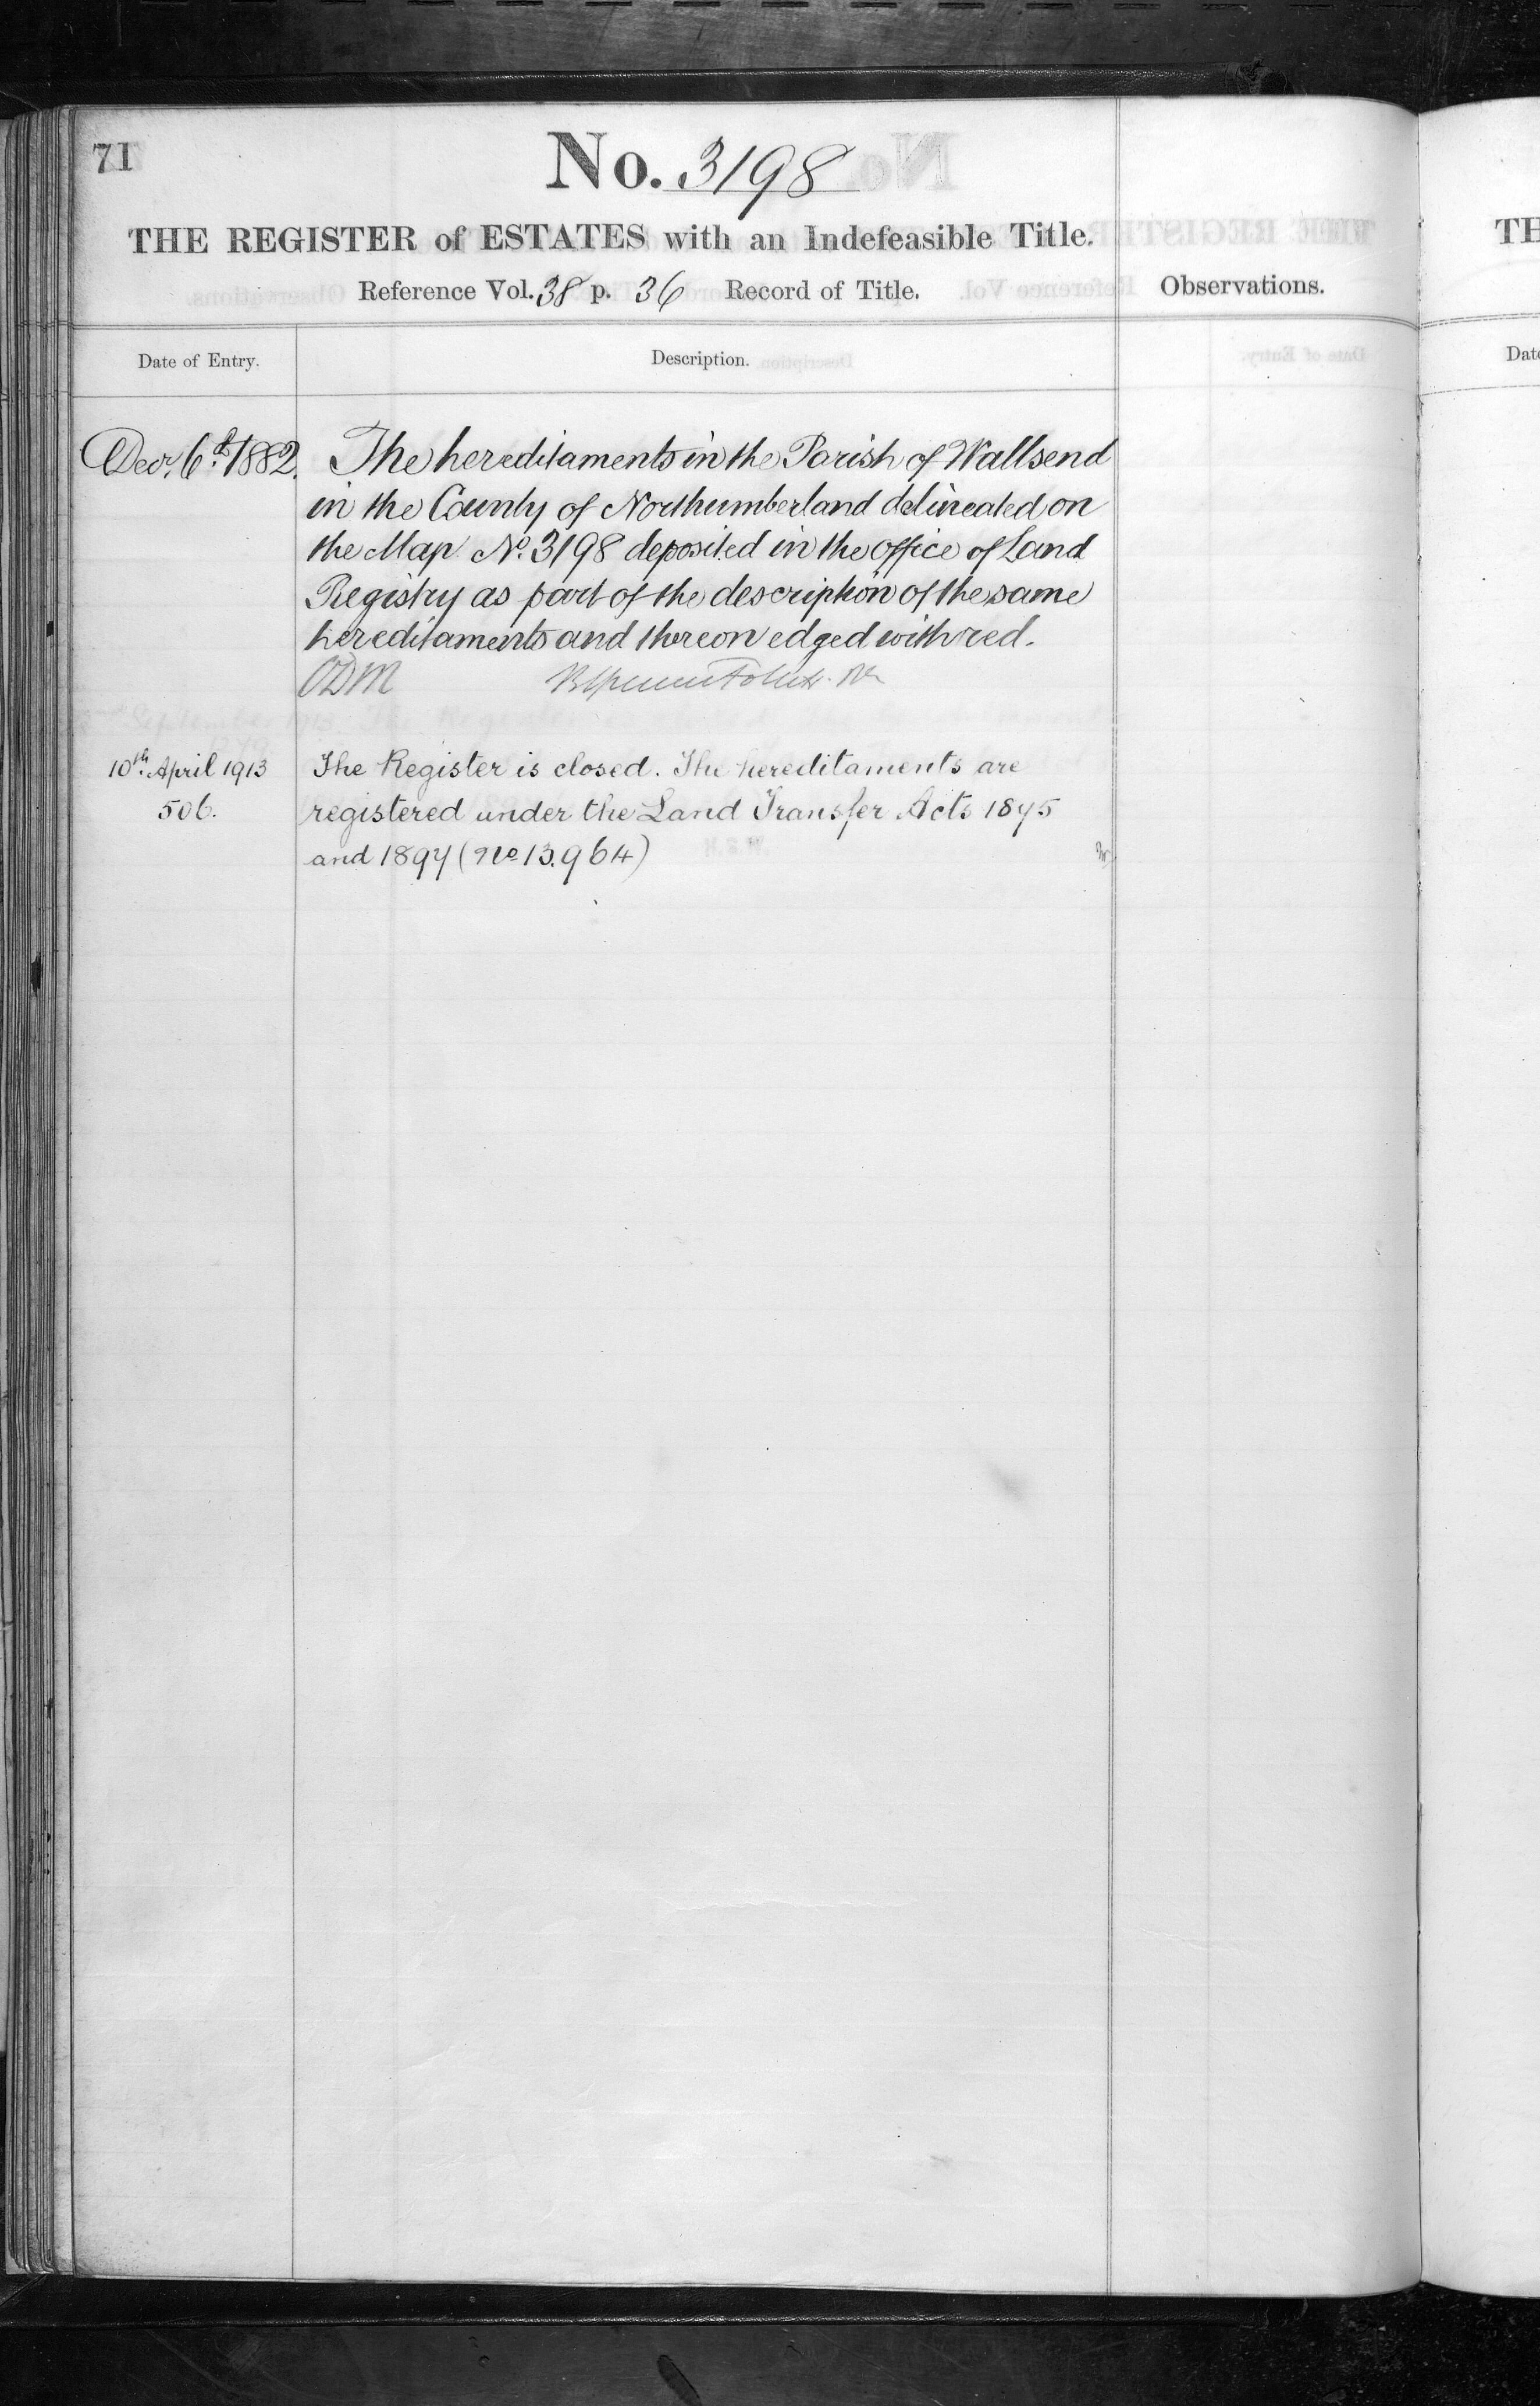 71
No. 3198
THE REGISTER of ESTATES with an Indefeasible Title.
Reference Vol. 38 p. 36 Record of Title.
Observations.
Date of Entry.
Description.
Decr. 6th 1882. The hereditaments in the Parish of Wallsend
in the County of Northumberland delineated on
the Map No. 3198 deposited in the office of Land
Registry as part of the description of the same
hereditaments and thereon edged with red.
ODM
10th April 1913 The Register is closed. The hereditaments are
506. registered under the Land Transfer Acts 1875
and 1897 (No 13.964)
TH
Date